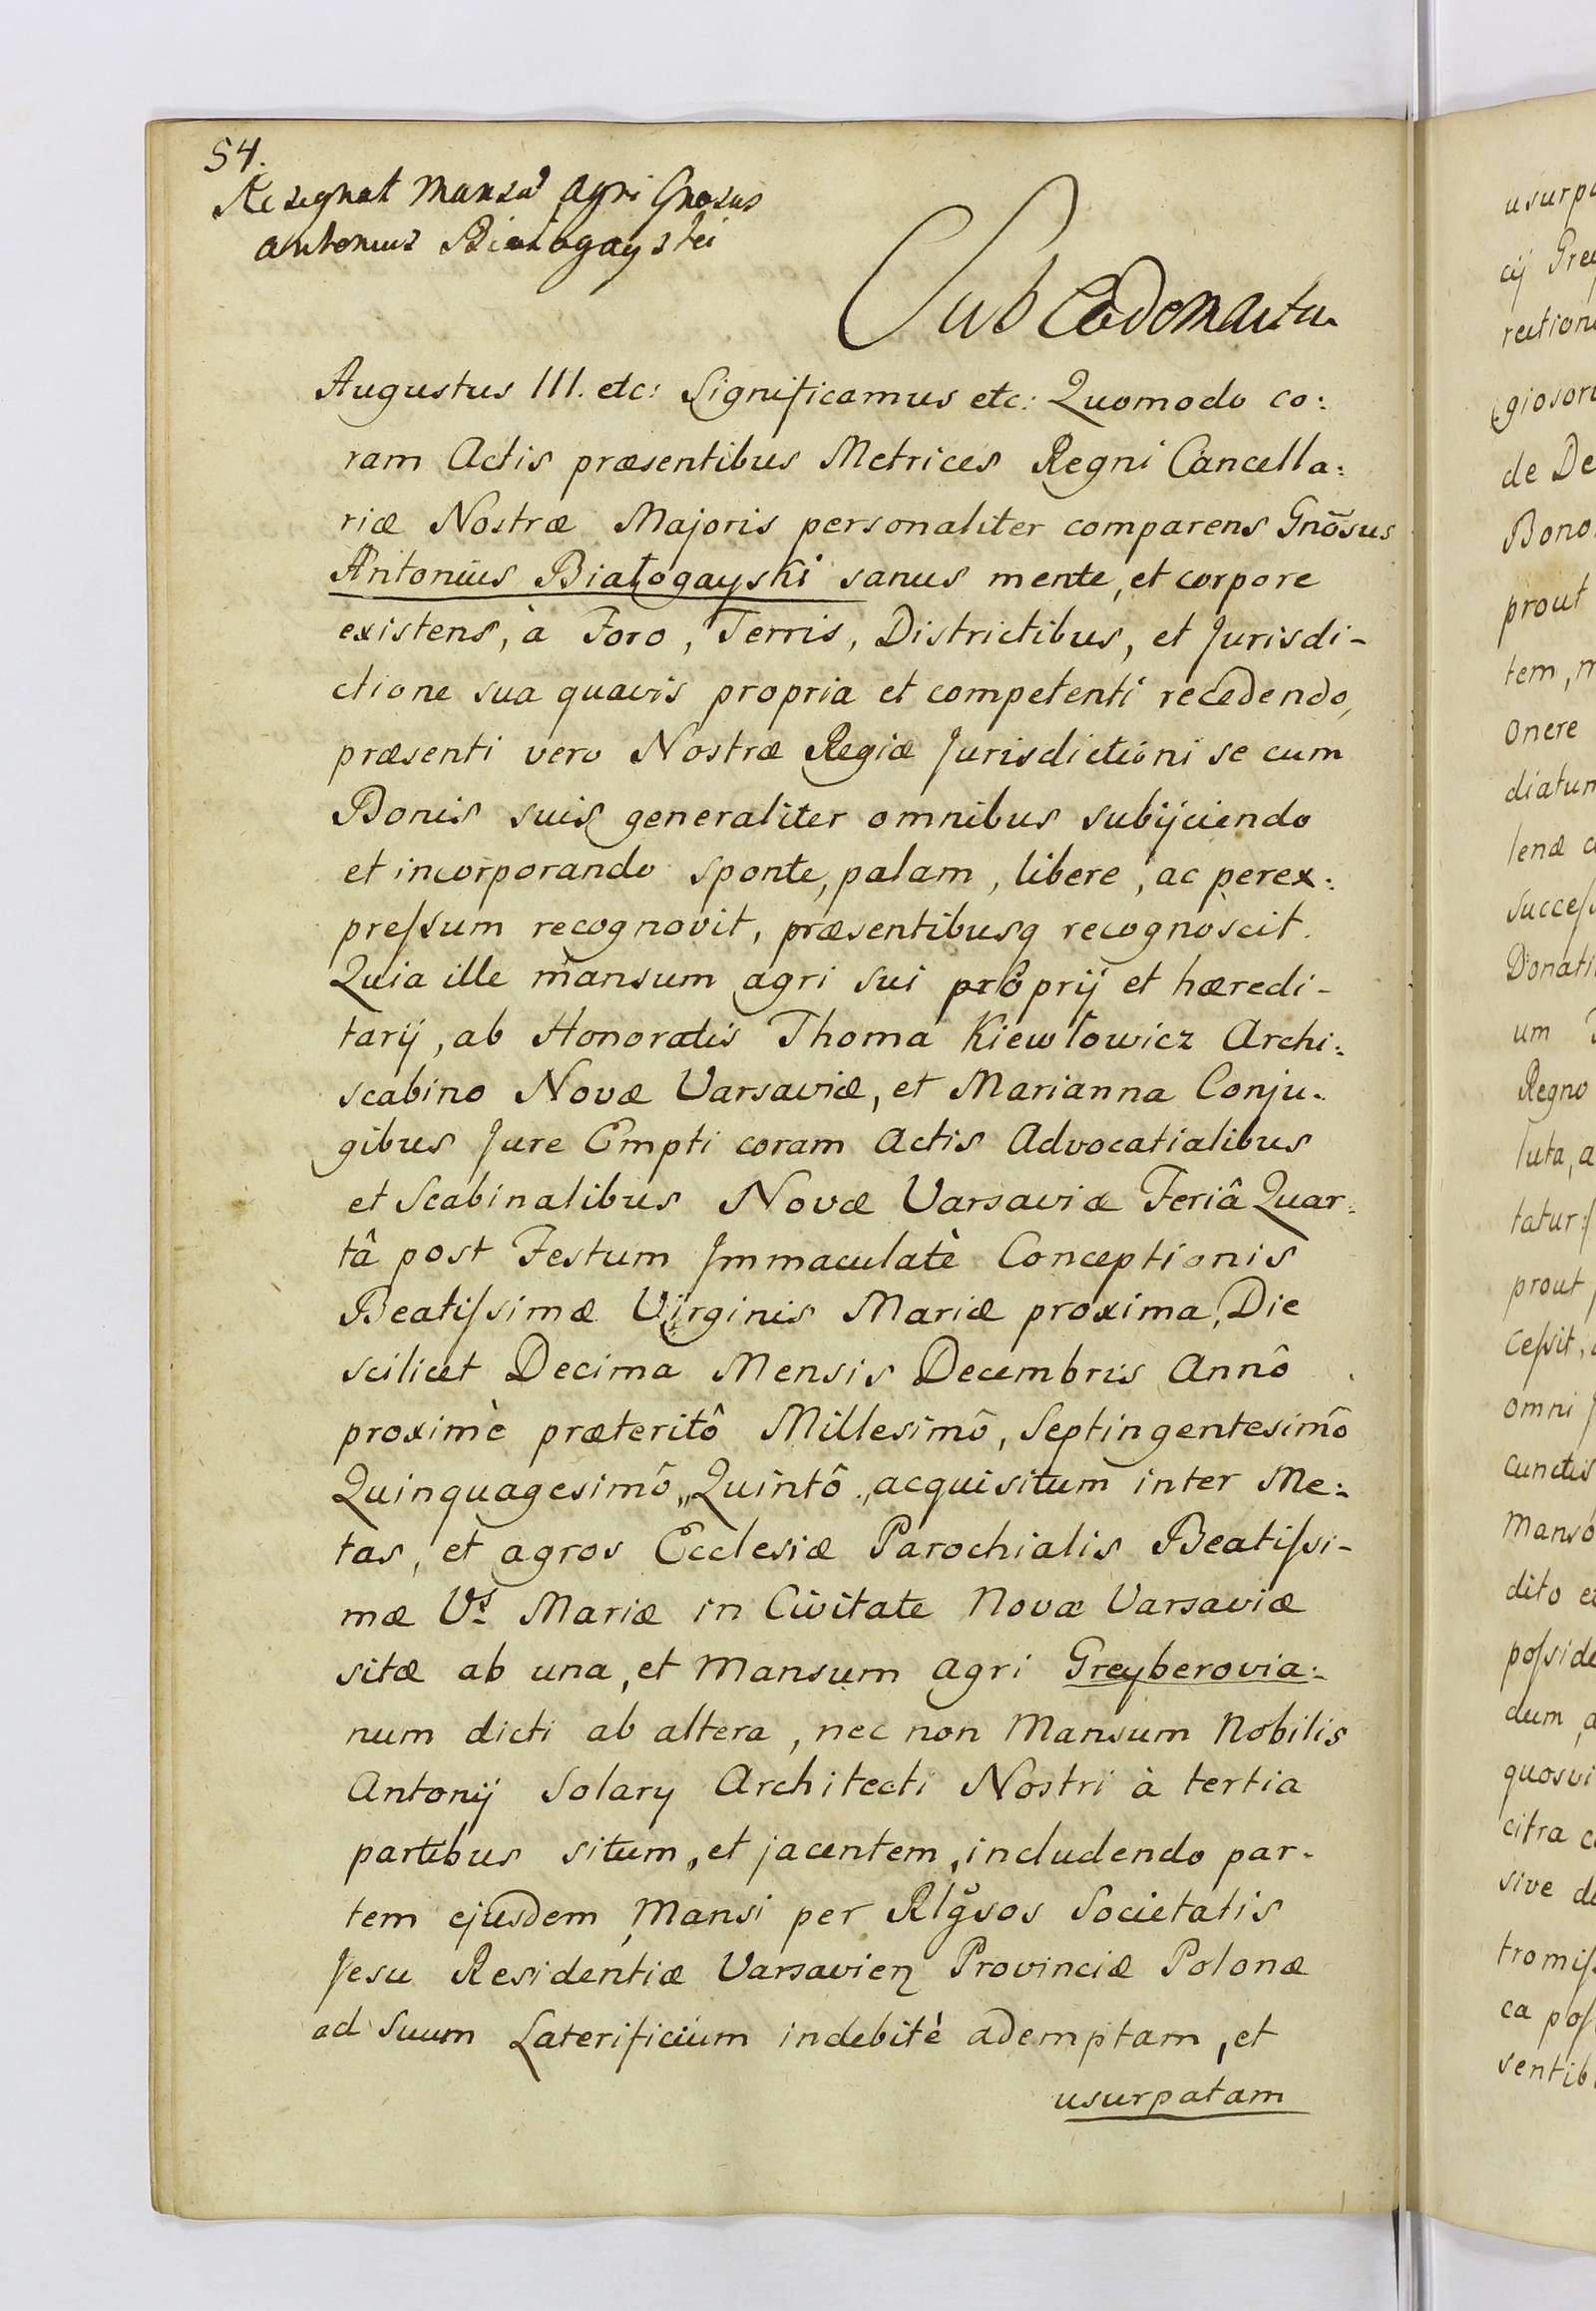 54.
Resignat mansũ agri Gnosus
Antonius Białogayski
Sub Eodem Actu
Augustus III. etc: Significamus etc: Quomodo co:
ram Actis præsentibus Metrices Regni Cancella:
riæ Nostræ Majoris personaliter comparens Gnōsus
Antonius Białogayski sanus mente, et corpore
existens, à Foro, Terris, Districtibus, et Jurisdi-
ctione sua quavis propria et competenti recedendo,
præsenti vero Nostræ Regiæ Jurisdictioni se cum
Bonis suis generaliter omnibus subijciendo
et incorporando sponte, palam, libere, ac perex:
preſsum recognovit, præsentibusq recognoscit.
Quia ille mansum agri sui proprij et hæredi-
tarij, ab Honoratis Thoma Kiewłowicz Archi:
scabino Novæ Varsaviæ, et Marianna Conju:
gibus Jure Empti coram Actis Advocatialibus
et Scabinalibus Novæ Varsaviæ Feriâ Quar:
tâ post Festum Immaculatè Conceptionis
Beatiſsimæ Virginis Mariæ proxima, Die
scilicet Decima Mensis Decembris Annô
proximè præteritô Millesimô, Septingentesimô
Quinquagesimô, Quintô, acquisitum inter Me:
tas, et agros Ecclesiæ Parochialis Beatiſsi-
mæ Vs Mariæ in Civitate Novæ Varsaviæ
sitæ ab una, et Mansum agri Greyberovia:
num dicti ab altera, nec non Mansum Nobilis
Antonij Solary Architecti Nostri à tertia
partibus situm, et jacentem, includendo par-
tem ejusdem Mansi per Rlg̃sos Societatis
Jesu Residentiæ Varsavien Provinciæ Polonæ
ad Suum Laterificium indebitè ademptam, et
usurpatam
cij
giosoru
de De
Bono
prout
tem, m
onere
diatum
lenæ
um
Regno
luta, a
tatur:
prout
ceſsit,
omni
cunctis
Manso
dito
poſside
dum
quosvi
citra
sive de
tromiſs
ca poſ
sentib